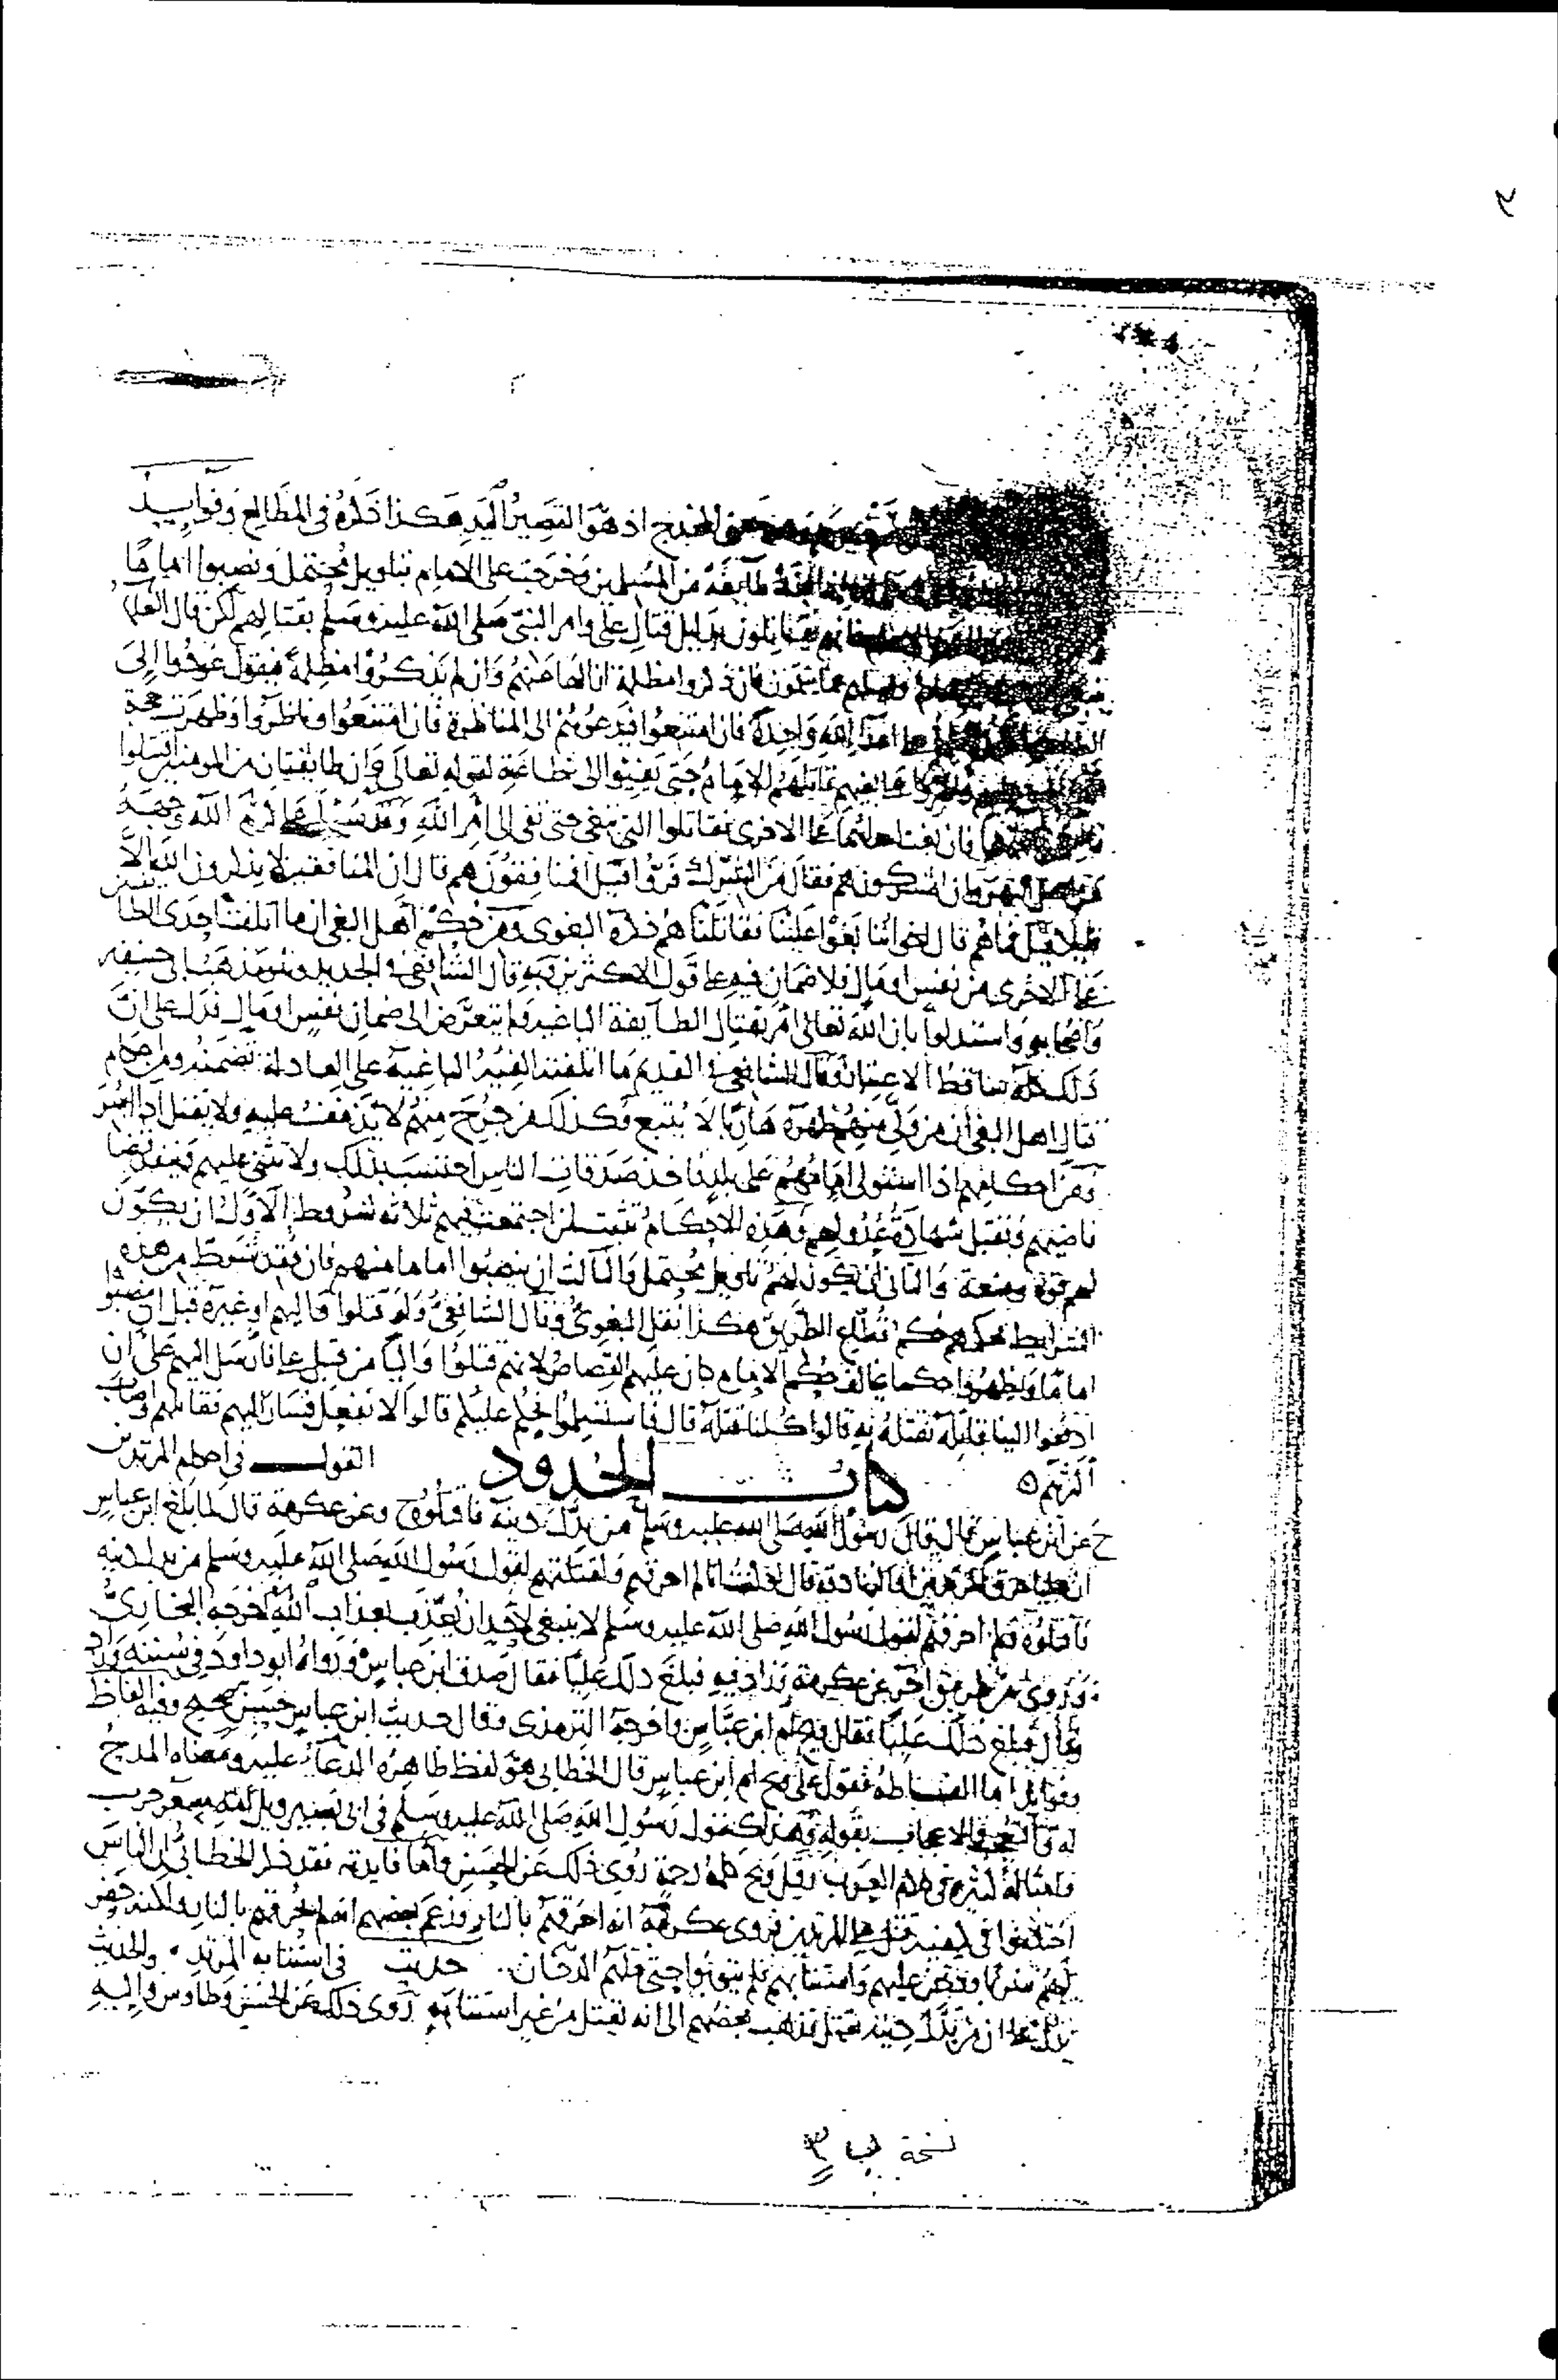 ٢
المخدج اذ هو القصير اليد هكذا ذكره في المطالع وفوايد
طايفة من المسلمين وخرجت على الامام بتاويل محتمل ونصبوا اماما
يقاتلون بدليل قتال علي وامر النبي صلى الله عليه وسلم بقتالهم لكن قال العلما
فان ذكروا مظلمة ازالها عنهم وان لم يذكروا مظلمة فيقول عودوا الى
واحدة فان امتنعوا فيدعوهم الى المناظرة فان امتنعوا او ناظروا وظهرت حجة
عليهم قاتلهم الامام حتى يفيئوا الى طاعته لقوله تعالى وان طايفتان من المومنين اقتتلوا
فان بغت احداهما على الاخرى فقاتلوا التي تبغي حتى تفي الى امر الله وقد سئل علي كرم الله وجهه
عن اهل النهروان امشركون هم فقال من الشرك فروا قيل افمنافقون هم قال ان المنافقين لا يذكرون الله الا
قليلا قيل فما هم قال اخواننا بغوا علينا فقاتلناهم ذكره البغوي ومن حكم اهل البغي ان ما اتلفت احدى الطايفتين
على الاخرى من نفس او مال فلا ضمان فيه على قول الاكثرين وبه قال الشافعي في الجديد وهو مذهب ابي حنيفه
واصحابه واستدلوا بان الله تعالى امر بقتال الطايفة الباغية ولم يتعرض الى ضمان نفس او مال فدل على ان
ذلك كله ساقط الاعتبار وقال الشافعي في القديم ما اتلفته الفية الباغية على العادلة تضمنه ومن احكام
قتال اهل البغي ان من ولى منهم ظهره هاربا لا يتبع وكذلك من جرح منهم لا يذفف عليه ولا يقتل اذا اسر
ومن احكامهم اذا استولى امامهم على بلد فاخذ صدقات الناس احتسب بذلك ولا تثنى عليهم وينفذ قضا
قاضيهم وتقبل شهادة عدولهم وهذه الاحكام تثبت لمن اجتمعت فيهم ثلاثة شروط الاول ان يكون
لهم قوة ومنعة والثاني ان يكون لهم تاويل محتمل والثالث ان ينصبوا اماما منهم فان فقد شرط من هذه
الشرايط فحكمهم حكم قطاع الطريق هكذا نقل البغوي وقال الشافعي ولو قتلوا واليهم او غيره قبل ان ينصبوا
اماما ويظهروا حكما يخالف حكم الامام كان عليهم القصاص لانهم قتلوا واليا من قبل علي فارسل اليهم علي ان
ادفعوا الينا قاتله نقتله به قالوا كلنا قتله قال فاستسلموا نحكم عليكم قالوا لا نفعل فسار اليهم فقاتلهم واصاب
اكثرهم
كتاب الحدود
القول في احكام المرتدين
ح عن ابن عباس قال قال رسول الله صلى الله عليه وسلم من بدل دينه فاقتلوه ح وعن عكرمة قال لما بلغ ابن عباس
ان عليا حرق المرتدين او الزنادقة قال لو كنت انا لم احرقهم ولقتلتهم لقول رسول الله صلى الله عليه وسلم من بدل دينه
فاقتلوه ولم احرقهم لقول رسول الله صلى الله عليه وسلم لا ينبغي لاحد ان يعذب بعذاب الله اخرجه البخاري
وروي من طريق اخر عن عكرمة وزاد فيه فبلغ ذلك عليا فقال صدق ابن عباس ورواه ابو داود في سننه وزاد
وقال فبلغ ذلك عليا فقال ويح ام ابن عباس واخرجه الترمذي وقال حديث ابن عباس حسن صحيح وفيه الفاظ
وفوايد اما الفاظه فقول علي ويح ام ابن عباس قال الخطابي هو لفظ ظاهره الدعا عليه ومعناه المدح
له والاعجاب بقوله وهذا كقول رسول الله صلى الله عليه وسلم في ابي بصير ويل امه مسعر حرب
وامثاله كثيرة في كلام العرب وقيل ويح كلمة رحمة روي ذلك عن الحسن واما فايدته فقد ذكر الخطابي ان الناس
اختلفوا في كيفية قتل علي المرتدين فروى عكرمة انه احرقهم بالنار وزعم بعضهم انه لم يحرقهم بالنار ولكنه حفر
لهم ودخن عليهم واستتابهم فلم يتوبوا حتى قتلهم الدخان. حديث في استتابة المرتد. والحديث
يدل على ان من بدل دينه يقتل فذهب بعضهم الى انه يقتل من غير استتابة روي ذلك عن الحسن وطاوس واليه
نسخة ب ٣